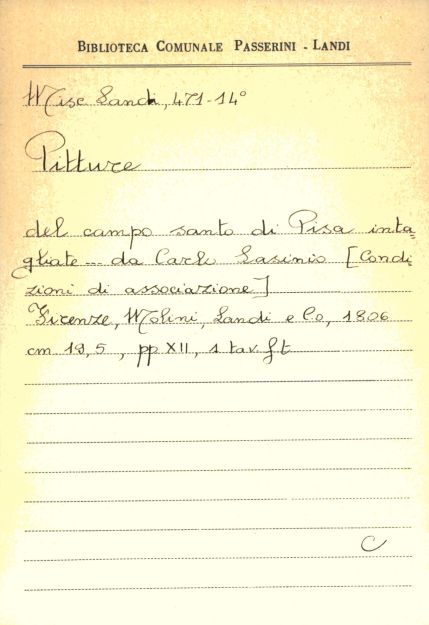 BIBLIOTECA COMUNALE PASSERINI - LANDI
Misc Landi, 471-14°
Pitture
del campo santo di Pisa inta-
gliate... da Carlo Lasinio [Condi-
zioni di associazione]
Firenze, Molini, Landi e C.o, 1806
cm 19,5, pp XII, 1 tav. ft
C